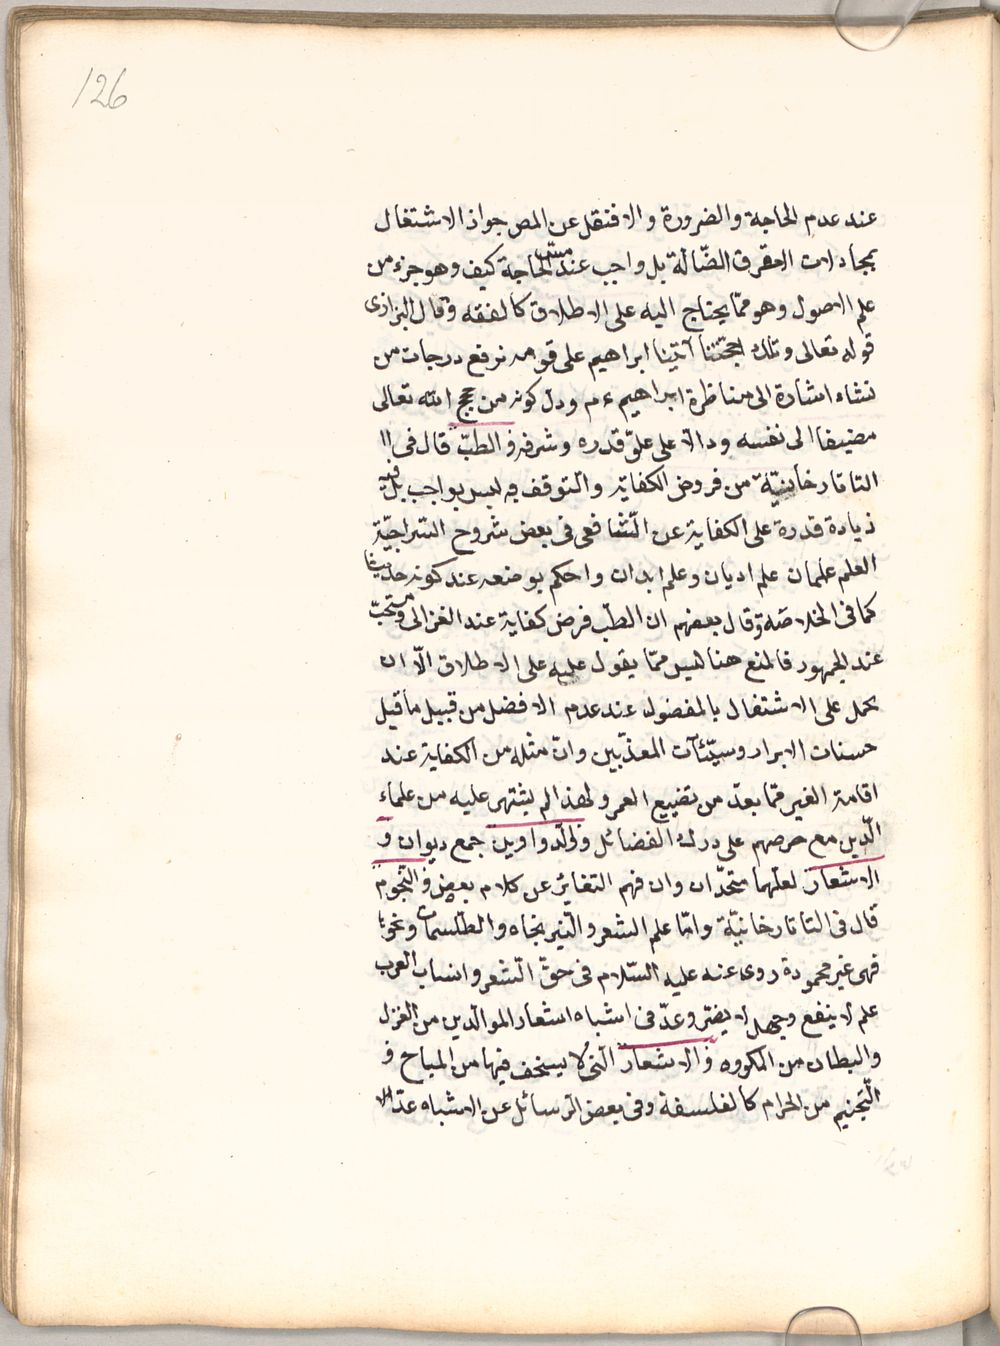 126
عند عدم الحاجة والضرورة والا فنقل عن المص جواز الاشتغال
بمجادلات الفرق الضالة بل واجب عند مس الحاجة كيف وهو جزء من
علم الاصول وهو مما يحتاج اليه على الاطلاق كالفقه وقال البزازى
قوله تعالى وتلك حجتنا آتينا ابراهيم على قومه نرفع درجات من
نشاء اشارة الى مناظرة ابراهيم ءم ودل كونه من حجج الله تعالى
مضيفا الى نفسه ودالا على علو قدره وشرفه و الطب قال فى
التاتارخانية من فروض الكفاية والتوقف فيه ليس بواجب بل فيه
زيادة قدرة على الكفاية عن الشافعى فى بعض شروح السراجية
العلم علمان علم اديان وعلم ابدان واحكم بوضعه عند كونه حديثا
كما فى الخلاصة وقال بعضهم ان الطب فرض كفاية عند الغزالى ومستحب
عند الجمهور فالمنع هنا ليس مما يقول عليه على الاطلاق الا ان
يحمل على الاشتغال بالمفضول عند عدم الافضل من قبيل ما قيل
حسنات الابرار وسيئآت المعذبين وان مثله من الكفاية عند
اقامة الغير مما يعد من تضييع العمر ولهذا لم يشتهر عليه من علماء
الدين مع حرصهم على درك الفضائل و الدواوين جمع ديوان و
الاشعار لعلهما متحدان وان فهم التغاير عن كلام بعض و النجوم
قال فى التاتارخانية واما علم الشعر والنيرنجاه والطلسمات ونحوها
فهى غير محمودة روى عنه عليه السلام فى حق الشعر وانساب العرب
علم لا ينفع وجهل لا يضر وعد فى اشباه اشعار الموالدين من الغزل
والبطان من المكروه و الاشعار التى لا يسخف فيها من المباح و
التنجيم من الحرام كالفلسفة وفى بعض الرسائل عن الاشباه عد الا